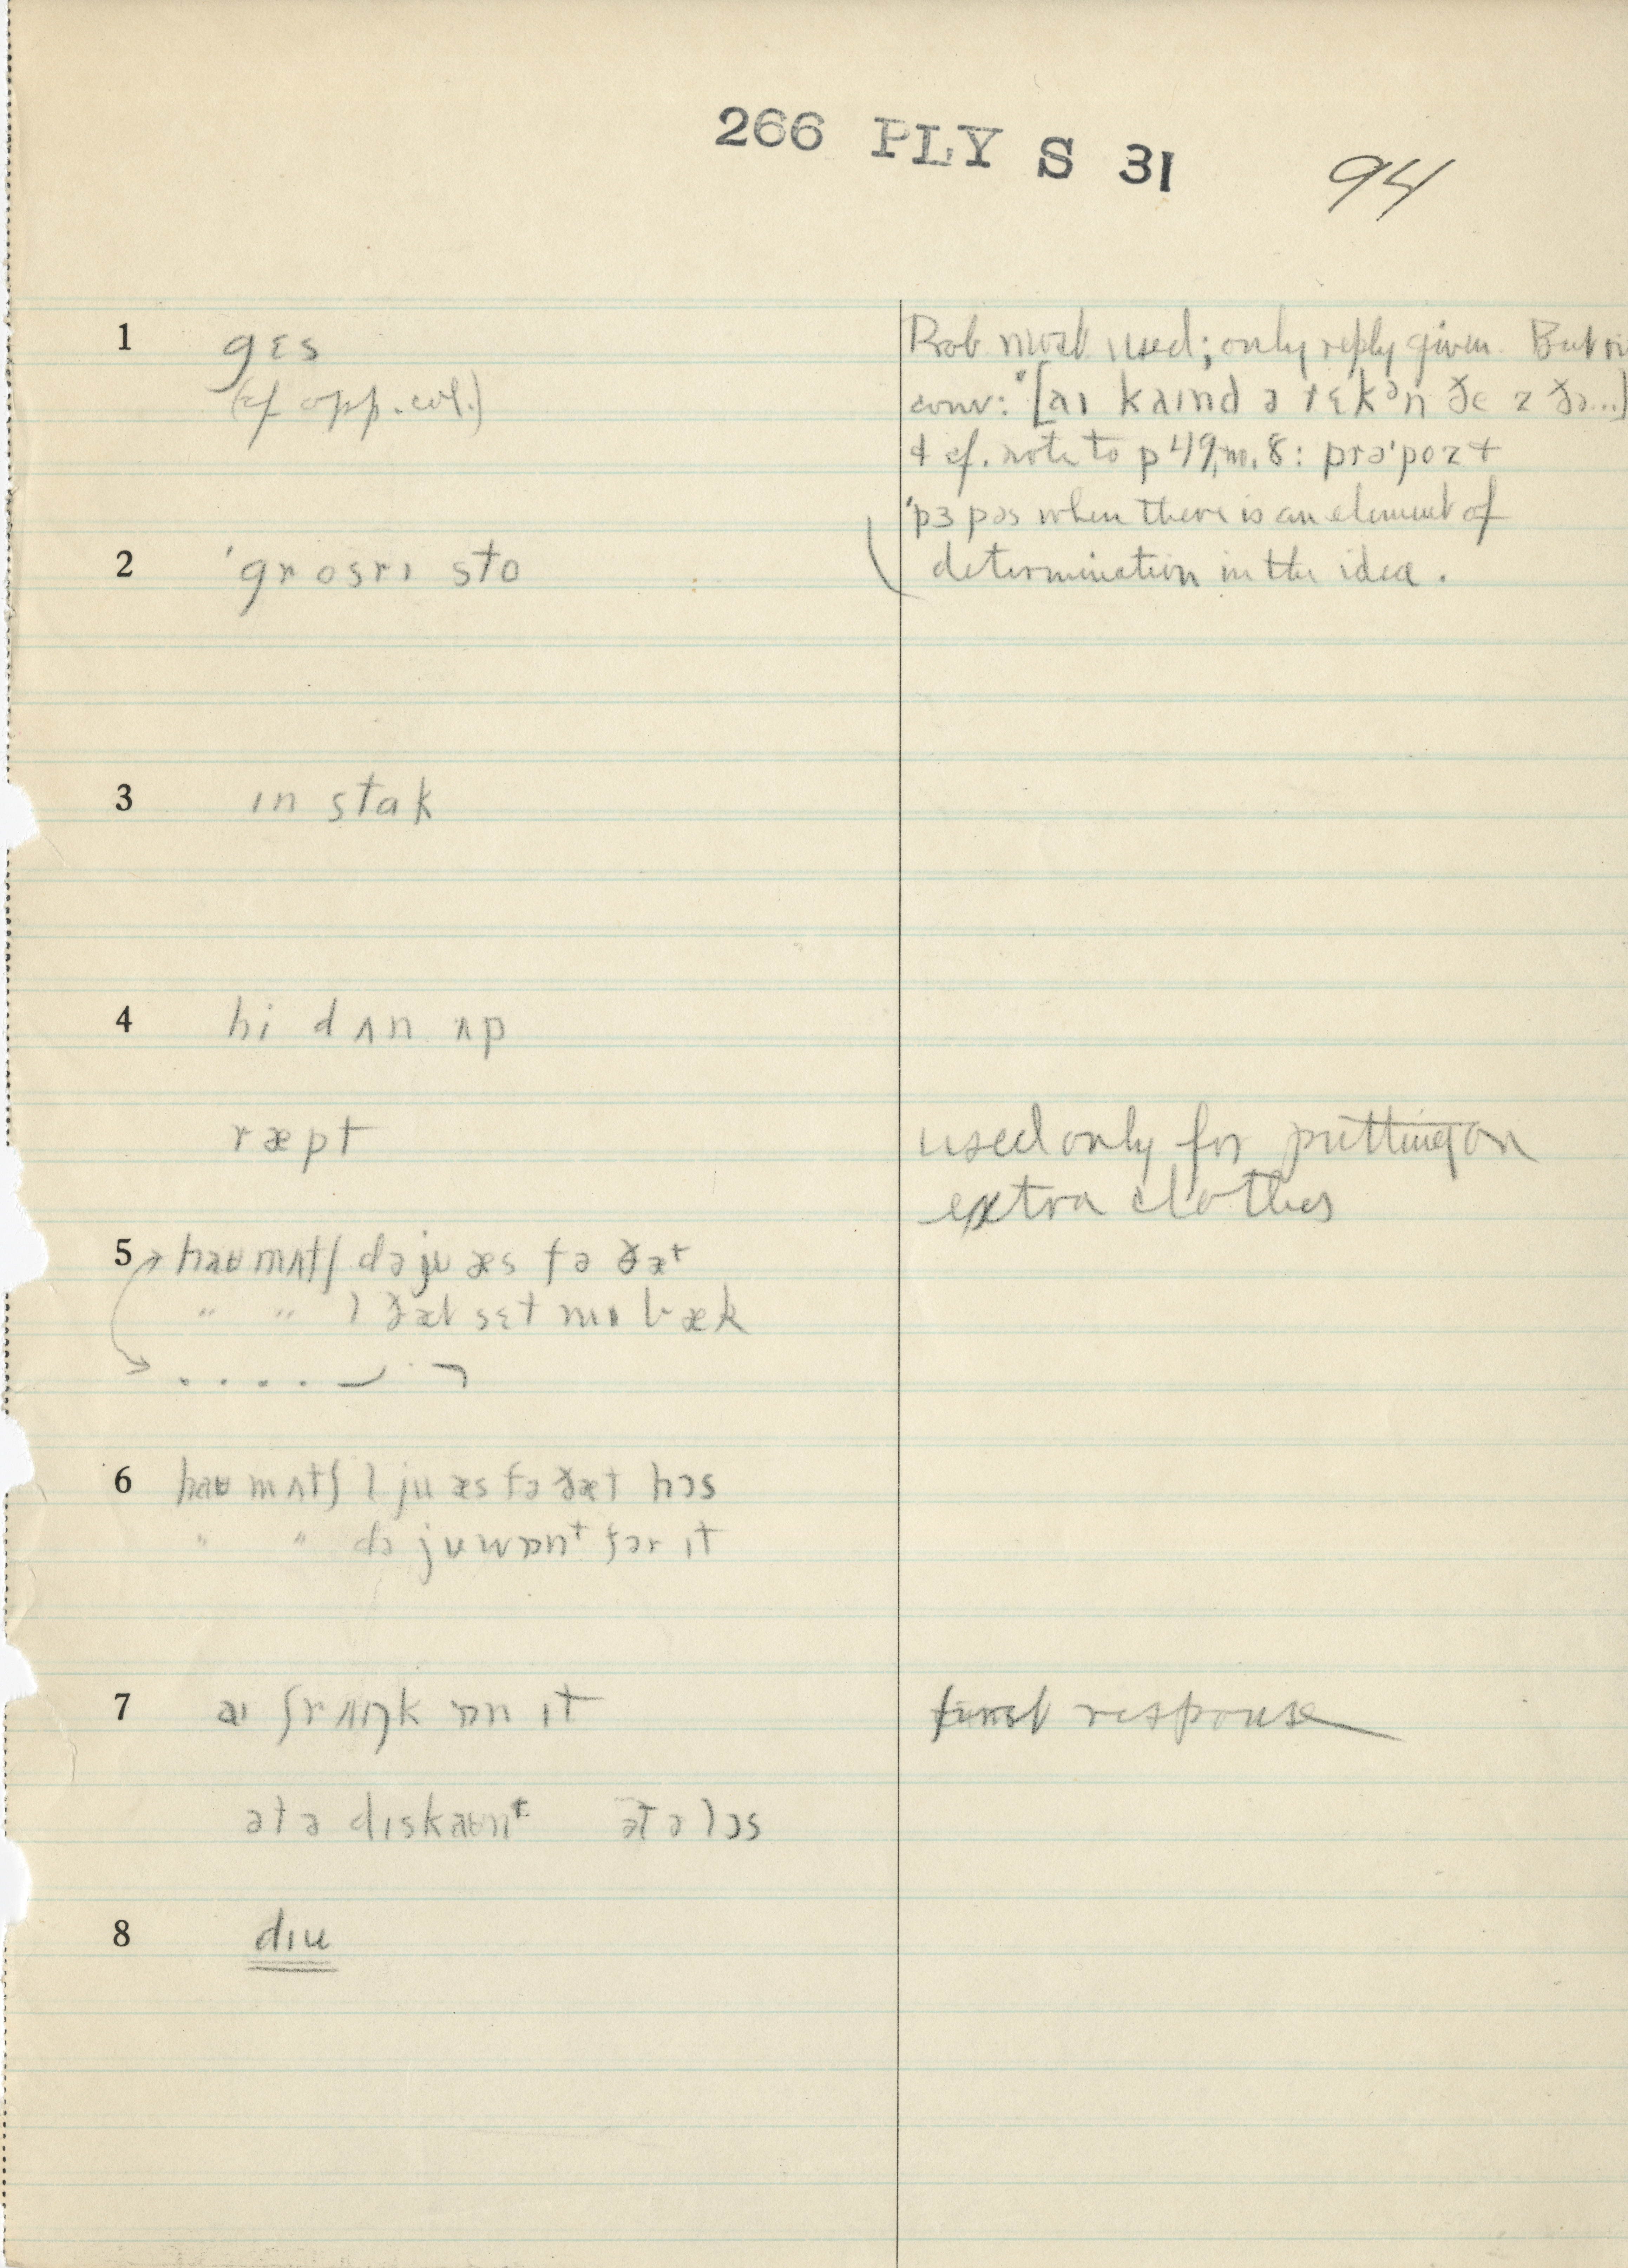 266 PLY S 31 94
1 gɛs
(cf opp. col.)
Prob most used; only reply given. But in
conv: [aɪ kaɪnd ə rɛkᵊn ðe z ðə...]
+ cf. note to p 49, no. 8: prə'poz +
'pɜpəs when there is an element of
determination in the idea.
2 'grosrɪ sto
3 ɪn stak
4 hi dʌn ʌp
ræpt
used only for putting on
extra clothes
5 haʊ mʌtʃ də ju æs fə ðæt
" " l ðæt sɛt mɪ bæk
6 haʊ mʌtʃ l ju æs fə ðæt hɔs
" " də ju wɒnt fər ɪt
7 aɪ ʃrʌŋk ɒn ɪt
first response
ət ə dɪskaʊnt ət ə lɔs
8 dɪu